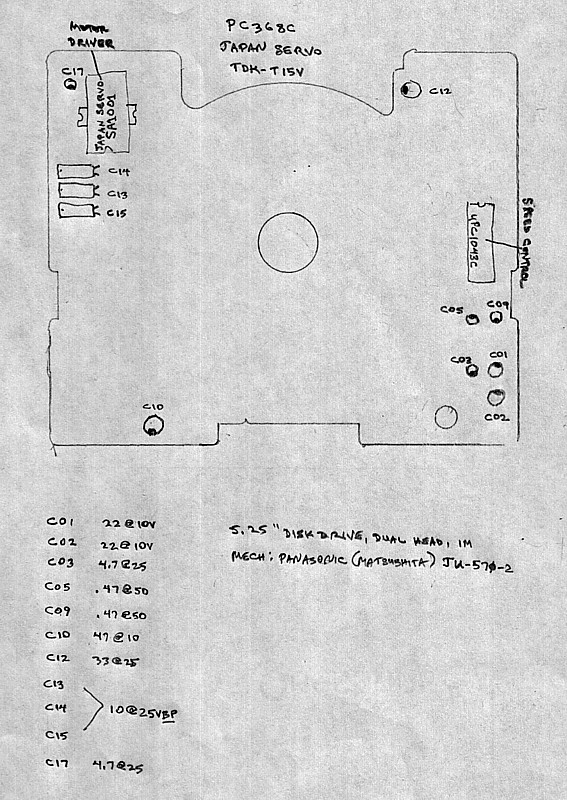 PC368C
JAPAN SERVO
TDK-T15V
MOTOR
DRIVER
C17
JAPAN SERVO
SA1001
C12
C14
C13
C15
SPEED CONTROL
µPC1043C
C05
C09
C03
C01
C02
C10
C01 22@10V
C02 22@10V
C03 4.7@25
C05 .47@50
C09 .47@50
C10 47@10
C12 33@25
C13
C14 10@25VBP
C15
C17 4.7@25
5.25" DISK DRIVE, DUAL HEAD, 1M
MECH: PANASONIC (MATSUSHITA) JU-570-2